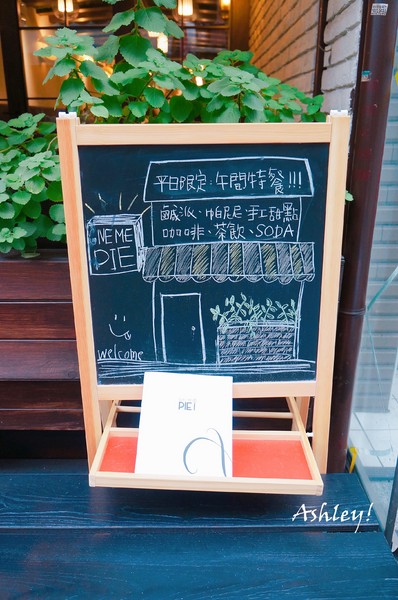 平日限定·午間特餐!!!
鹹派、帕尼尼、手工甜點
咖啡、茶飲、SODA
NEME
PIE
welcome
PIE!
Ashley!